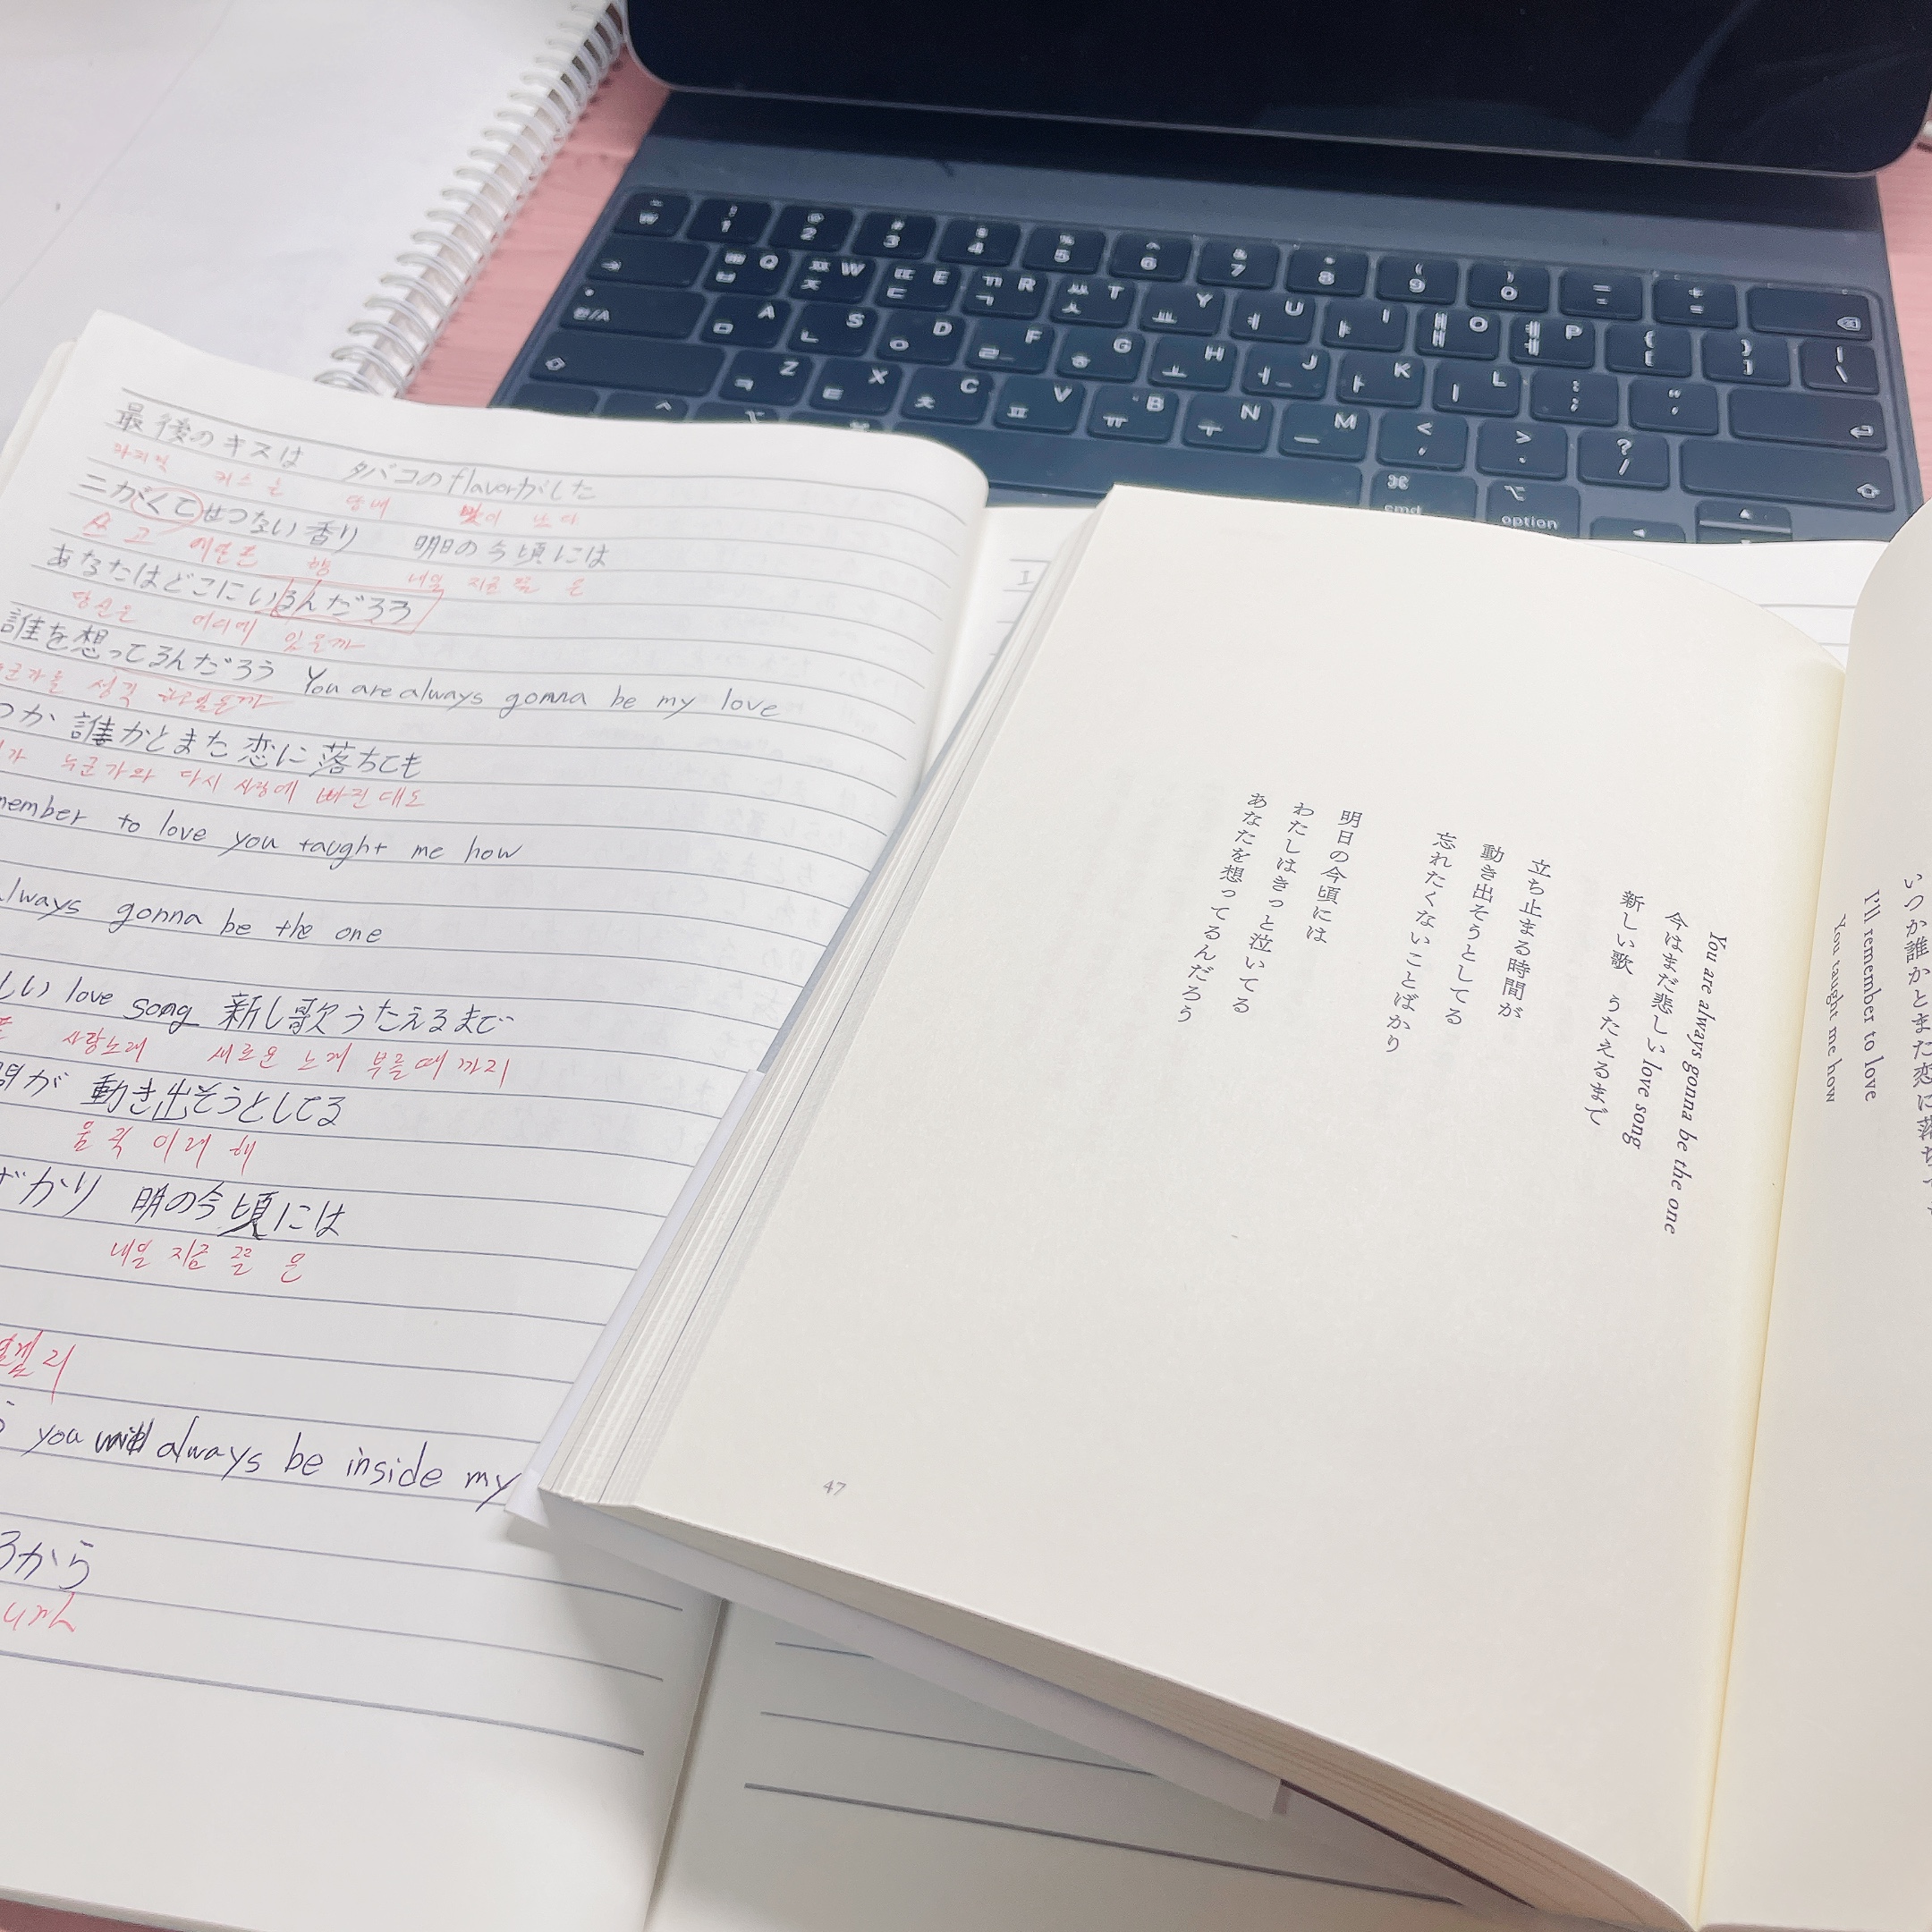 最後のキスは タバコのflavorがした
마지막 키스는 담배 맛이 난다
ニがくてせつない香り 明日の今頃には
쓰고 애달픈 향 내일 지금쯤은
あなたはどこにいるんだろろ
당신은 어디에 있을까
誰を想ってるんだろう You are always gonna be my love
생각
つか 誰かとまた 恋に 落ちても
누군가와 다시 사랑에 빠진대도
member to love you taught me how
lways gonna be the one
しい love song 新し歌うたえるまで
사랑노래 새로운 노래 부를때 까지
間が 動き出そうとしてる
움직 이려 해
ばかり 明の今頃には
내일 지금 은
you will always be inside my
るから
You are always gonna be the one
今はまだ悲しい love song
新しい歌 うたえるまで
立ち止まる時間が
動き出そうとしてる
忘れたくないことばかり
明日の今頃には
わたしはきっと泣いてる
あなたを想ってるんだろう
47
いつか誰かとまた恋に落ち
I'll remember to love
You taught me how
~ ₩ ! 1 @ 2 # 3 $ 4 % 5 ^ 6 & 7 * 8 ( 9 ) 0 - = +
ㅃ ㅂ Q ㅉ ㅈ W ㄸ ㄷ E ㄲ ㄱ R ㅆ ㅅ T ㅛ Y ㅕ U ㅑ I ㅒ ㅐ O ㅖ ㅔ P { [ } ] | \
한/A ㅁ A ㄴ S ㅇ D ㄹ F ㅎ G ㅗ H ㅓ J ㅏ K ㅣ L : ; " '
ㅋ Z ㅌ X ㅊ C ㅍ V ㅠ B ㅜ N ㅡ M < , > . ? /
⌘ cmd ⌥ option